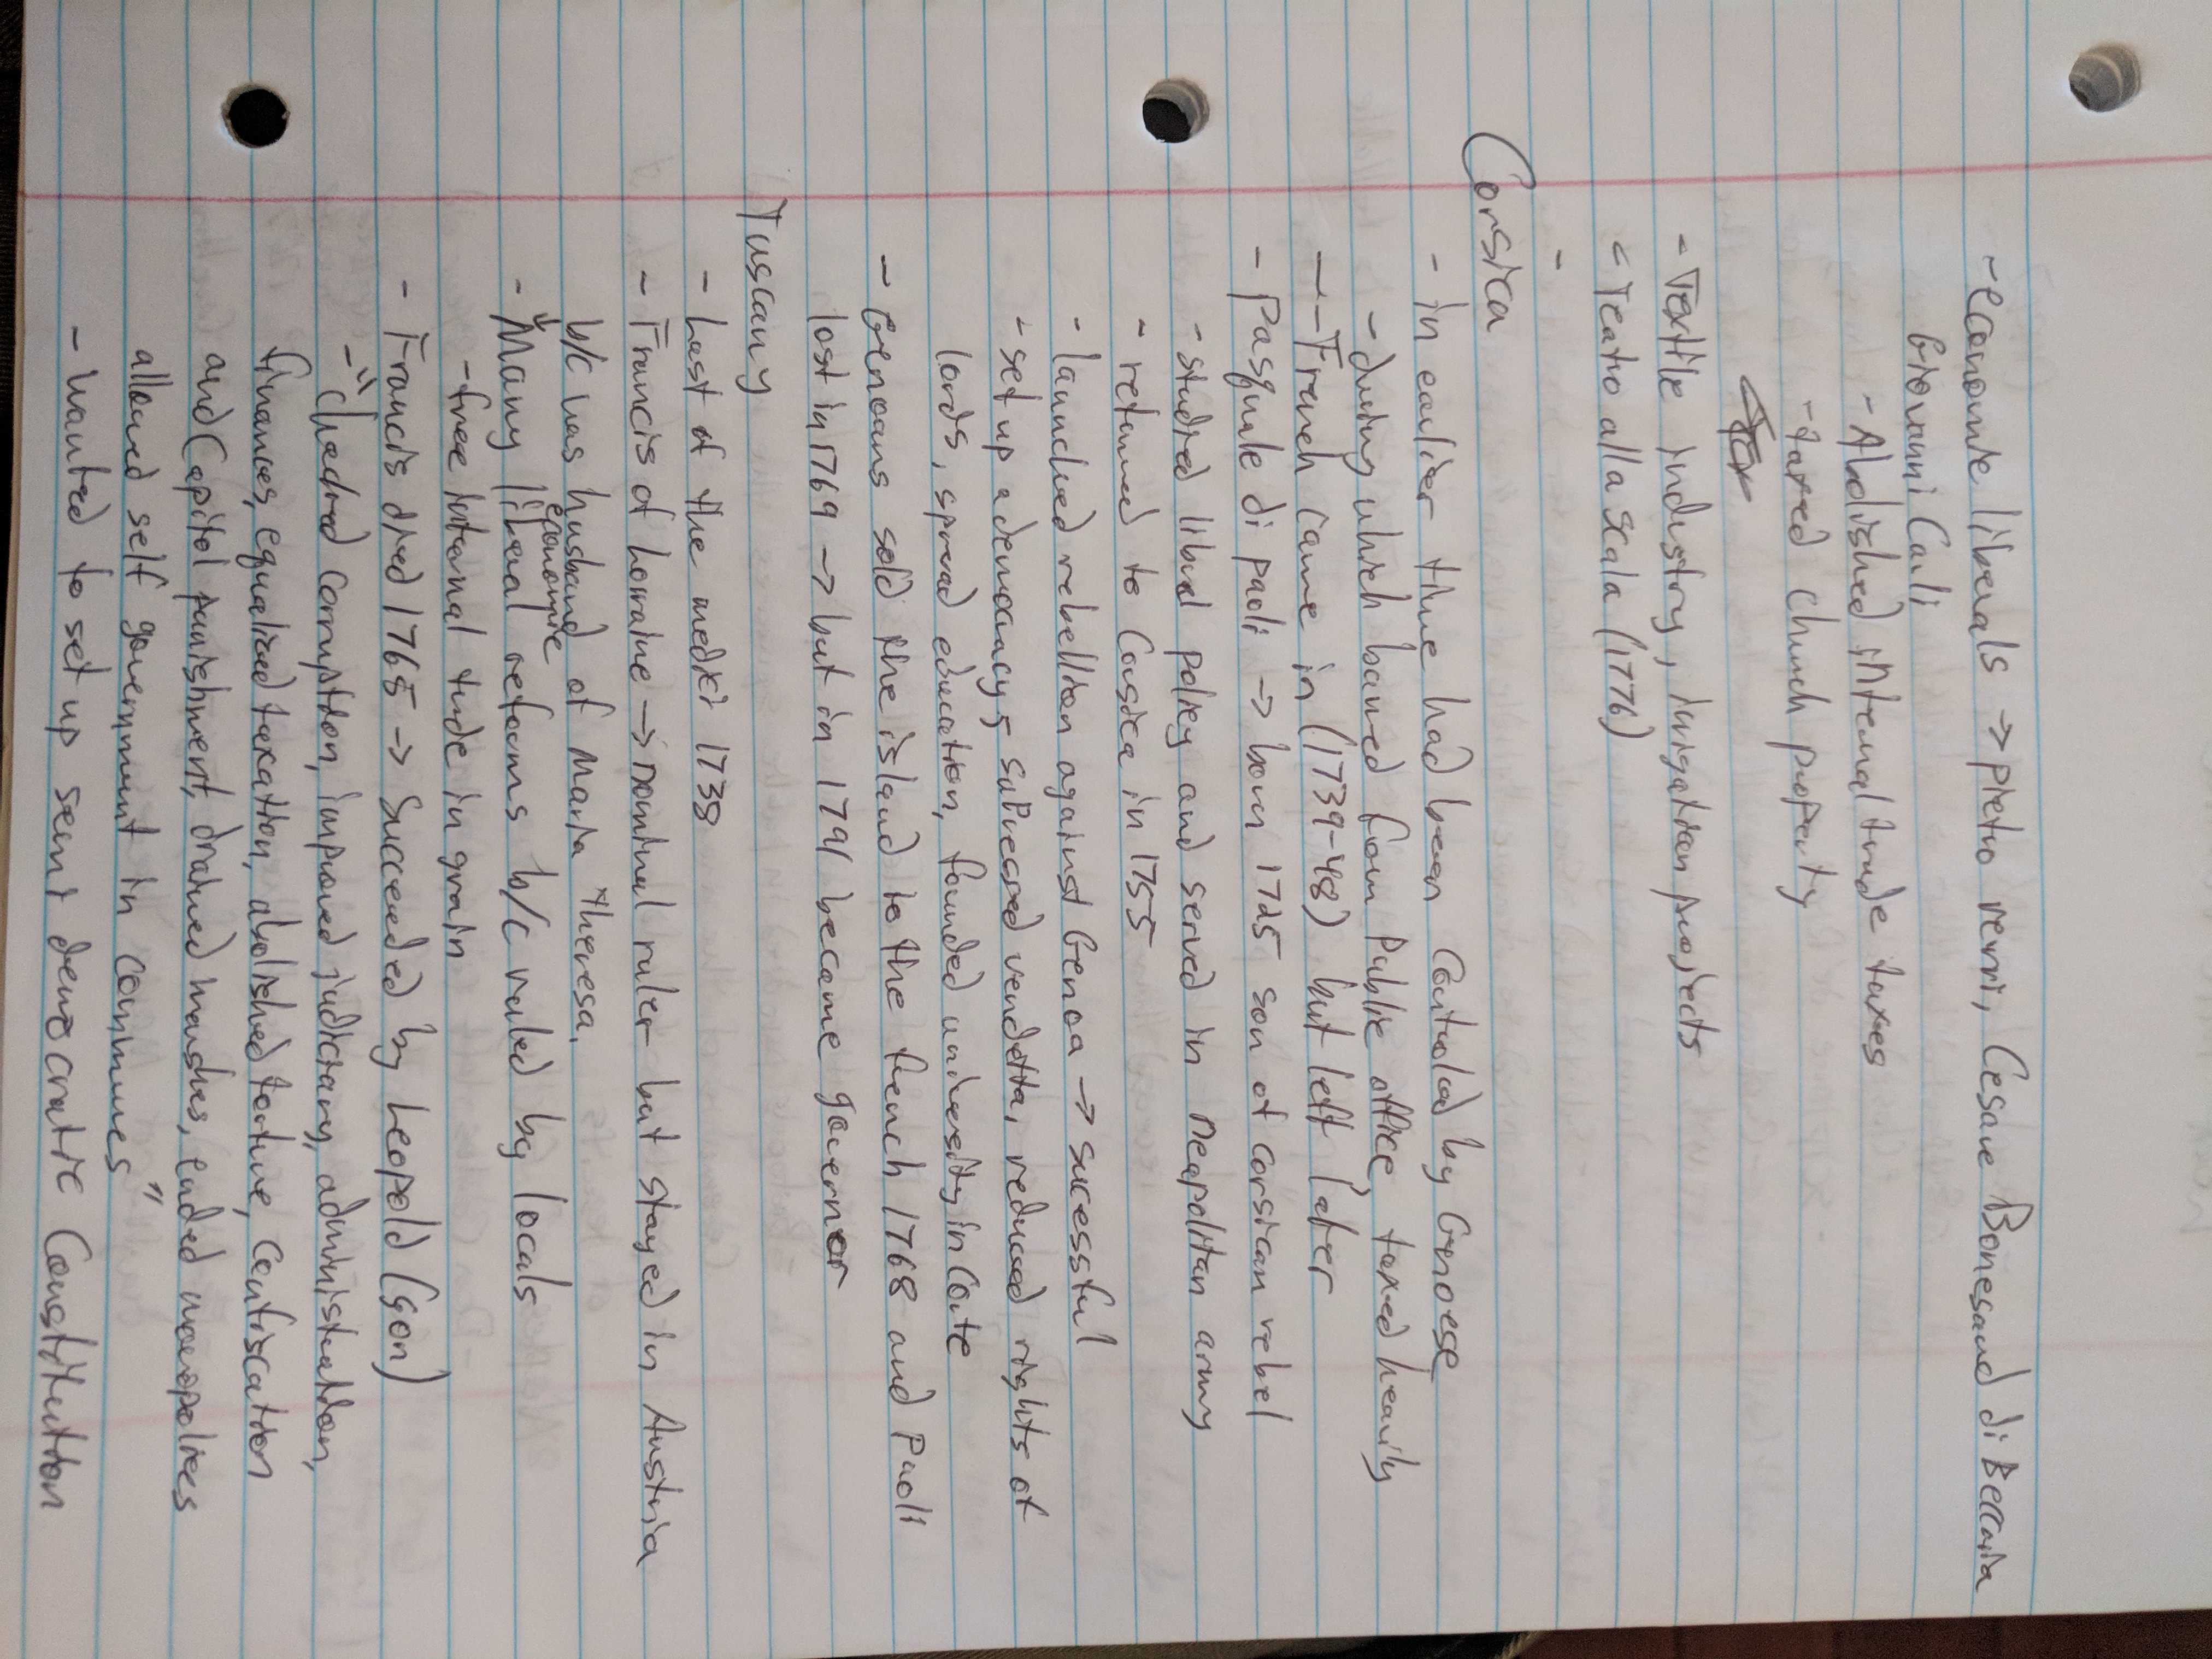 - economic liberals -> pietro verri, Cesare Bonesand di Beccaria
Giovanni Carli
- Abolished internal trade taxes
- taxed church property
- Textile industry, irrigation projects
- Teatro alla scala (1776)
-
Corsica
- in earlier time had been Controled by Genoese
- during which banned from Public office, taxed heavily
-- French came in (1739-48) but left later
- Pasquale di paoli -> born 1725 son of corsican rebel
- studied liberal policy and served in neapolitan army
- returned to Corsica in 1755
- launched rebellion against Genoa -> sucessful
- set up a democracy, supressed vendetta, reduced rights of
lords, spread education, founded university in Corte
- Genoans sold the island to the french 1768 and Paoli
lost in 1769 -> but in 1791 became governor
Tuscany
- Last of the medici 1738
- Francis of lorraine -> nominal ruler but stayed in Austria
b/c was husband of Maria Theresa.
- Many liberal economic reforms b/c ruled by locals
- free internal trade in grain
- Francis died 1765 -> Succeeded by Leopold (son)
- "checked corruption, improved judiciary, administration,
finances, equalized taxation, abolished torture, Confiscation
and Capitol punishment, drained marshes, ended monopolies
allowed self government in communes"
- wanted to set up semi democratic Constitution